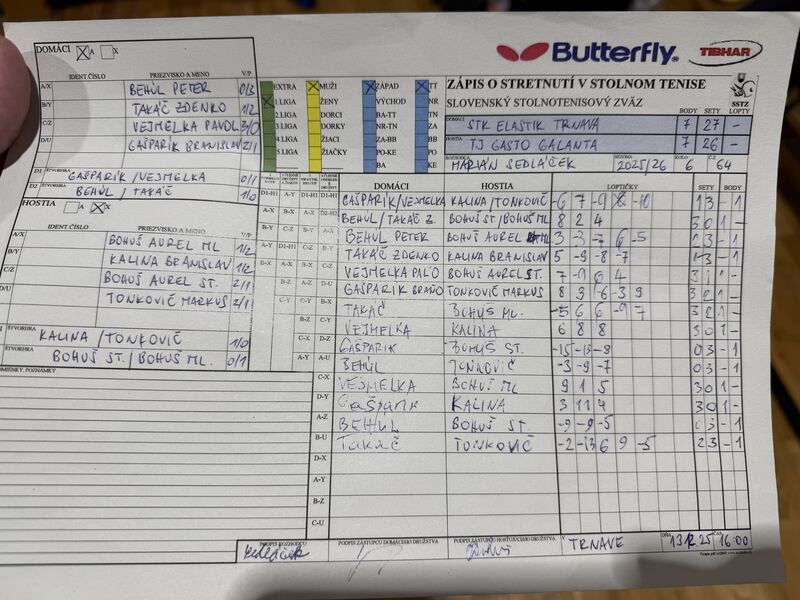 Butterfly® TIBHAR
DOMÁCI X A X
IDENT.ČÍSLO PRIEZVISKO A MENO V/P
A/X BEHÚL PETER 0/3
B/Y TAKÁČ ZDENKO 1/2
C/Z VEJMELKA PAVOL 3/0
D/U GAŠPARÍK BRANISLAV 2/1
D1 ŠTVORHRA GAŠPARÍK/VEJMELKA 0/1
D2 BEHÚL/TAKÁČ 1/0
HOSTIA A X
IDENT.ČÍSLO PRIEZVISKO A MENO V/P
BOHUŠ AUREL ML 1/2
KALINA BRANISLAV 1/2
C/Z BOHUŠ AUREL ST. 2/1
D/U TONKOVIČ MARKUS 2/1
ŠTVORHRA KALINA/TONKOVIČ 1/0
ŠTVORHRA BOHUŠ ST./BOHUŠ ML. 0/1
POZNÁMKY
EXTRA MUŽI ZÁPAD TT
1.LIGA ŽENY VÝCHOD NR
2.LIGA DORCI BA-TT TN
3.LIGA DORKY NR-TN ZA
4.LIGA ŽIACI ZA-BB BB
5.LIGA ŽIAČKY PO-KE PO
BA KE
ZÁPIS O STRETNUTÍ V STOLNOM TENISE
SLOVENSKÝ STOLNOTENISOVÝ ZVÄZ SSTZ
BODY SETY LOPTY
DOMÁCI STK ELASTIK TRNAVA 7 27 -
HOSTIA TJ GASTO GALANTA 7 26 -
ROZHODCA MARIÁN SEDLÁČEK SEZÓNA 2025/26 KOLO 6 Č.Z 64
DOMÁCI HOSTIA LOPTIČKY SETY BODY
GAŠPARÍK/VEJMELKA KALINA/TONKOVIČ -6 7 -9 -10 1 3 - 1
BEHÚL/TAKÁČ Z. BOHUŠ ST/BOHUŠ ML 8 2 4 3 0 1 -
BEHÚL PETER BOHUŠ AUREL ML 3 -7 6 -5 1 3 - 1
TAKÁČ ZDENKO KALINA BRANISLAV 5 -9 -8 -7 1 3 - 1
VEJMELKA PAĽO BOHUŠ AUREL ST. 7 -9 6 4 3 1 1 -
GAŠPARÍK BRAŇO TONKOVIČ MARKUS 8 3 -6 -3 9 3 2 1 -
TAKÁČ BOHUŠ ML. -5 6 6 -9 7 3 2 1 -
VEJMELKA KALINA 6 8 8 3 0 1 -
GAŠPARÍK BOHUŠ ST. -15 -13 -8 0 3 - 1
BEHÚL TONKOVIČ -3 -9 -7 0 3 - 1
C-X VEJMELKA BOHUŠ ML 9 1 5 3 0 1 -
D-Y Gašparík KALINA 3 11 4 3 0 1 -
A-Z BEHÚL BOHUŠ ST. -9 -9 -5 0 3 - 1
B-U Takáč TONKOVIČ -2 -13 6 9 -5 2 3 - 1
D-X
A-Y
B-Z
C-U
PODPIS ROZHODCU PODPIS ZÁSTUPCU DOMÁCEHO DRUŽSTVA PODPIS ZÁSTUPCU HOSŤUJÚCEHO DRUŽSTVA V TRNAVE DŇA 13.12.25 16:00